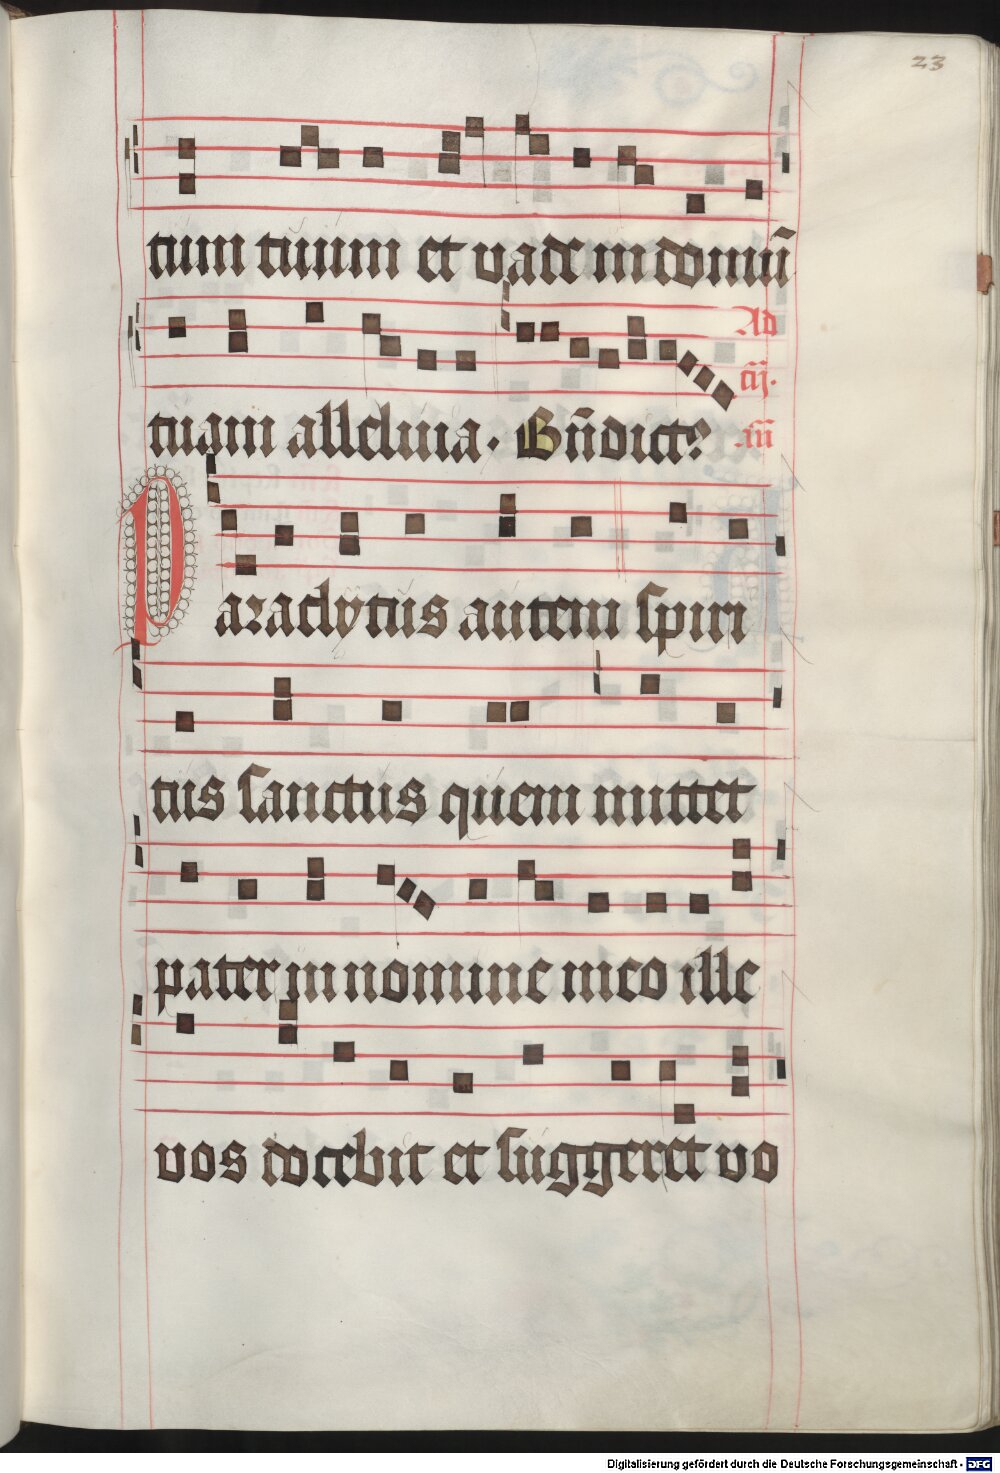 23
tum tuum et vade in domū
Ad
tuam alleluia. Bn̄dict9
cū.
.xii
Paraclytus autem spiri
tus sanctus quem mittet
pater in nomine meo ille
vos docebit et suggeret vo
Digitalisierung gefördert durch die Deutsche Forschungsgemeinschaft - DFG